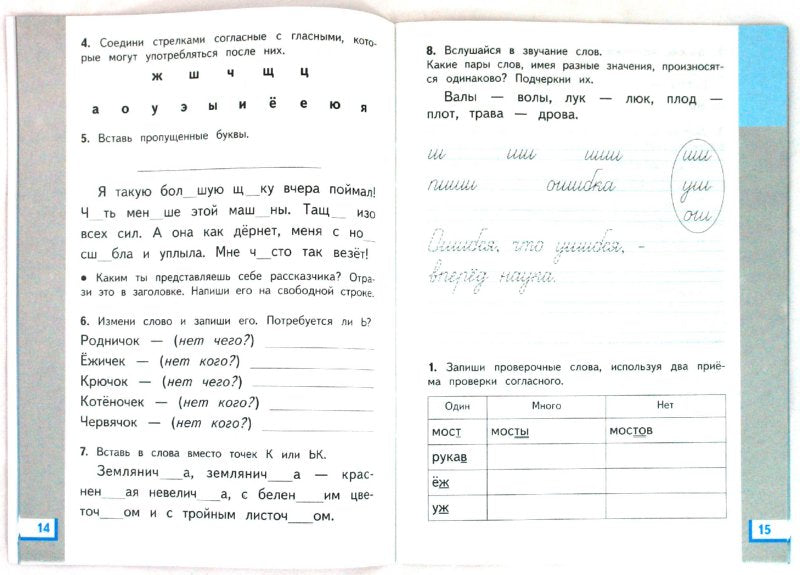 4. Соедини стрелками согласные с гласными, кото-
рые могут употребляться после них.
ж ш ч щ ц
а о у э ы и ё е ю я
5. Вставь пропущенные буквы.
Я такую бол__шую щ__ку вчера поймал!
Ч__ть мен__ше этой маш__ны. Тащ__ изо
всех сил. А она как дёрнет, меня с но__
сш__бла и уплыла. Мне ч__сто так везёт!
• Каким ты представляешь себе рассказчика? Отра-
зи это в заголовке. Напиши его на свободной строке.
6. Измени слово и запиши его. Потребуется ли Ь?
Родничок — (нет чего?)
Ёжичек — (нет кого?)
Крючок — (нет чего?)
Котёночек — (нет кого?)
Червячок — (нет кого?)
7. Вставь в слова вместо точек К или ЬК.
Землянич___а, землянич___а — крас-
нен___ая невелич___а, с белен___им цве-
точ___ом и с тройным листоч___ом.
14
8. Вслушайся в звучание слов.
Какие пары слов, имея разные значения, произносят-
ся одинаково? Подчеркни их.
Валы — волы, лук — люк, плод —
плот, трава — дрова.
ш иш шш иш
пиши ошибка уш
ош
Ошибся, что ушибся, –
вперёд наука.
1. Запиши проверочные слова, используя два приё-
ма проверки согласного.
Один Много Нет
мост мосты мостов
рукав
ёж
уж
15